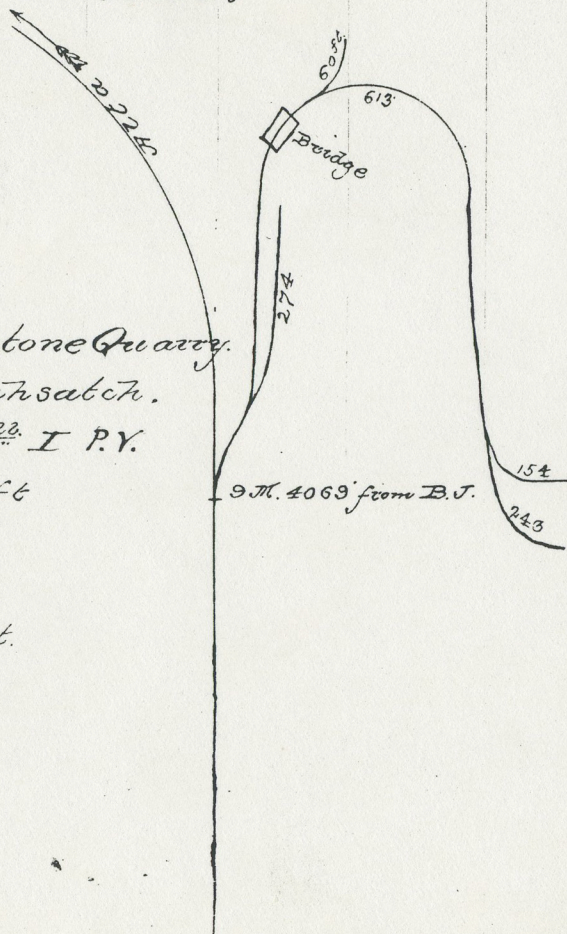 60 ft
613'
Bridge
274
tone Quarry.
hsatch.
I P.V.
ft
9 M. 4069' from B.J.
154
243
t.